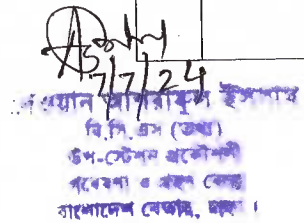 7/7/24
আশরাফুল ইসলাম
বি.সি.এস (তথ্য)
উপ-স্টেশন প্রকৌশলী
গবেষণা ও গ্রহণ কেন্দ্র
বাংলাদেশ বেতার, ঢাকা ।